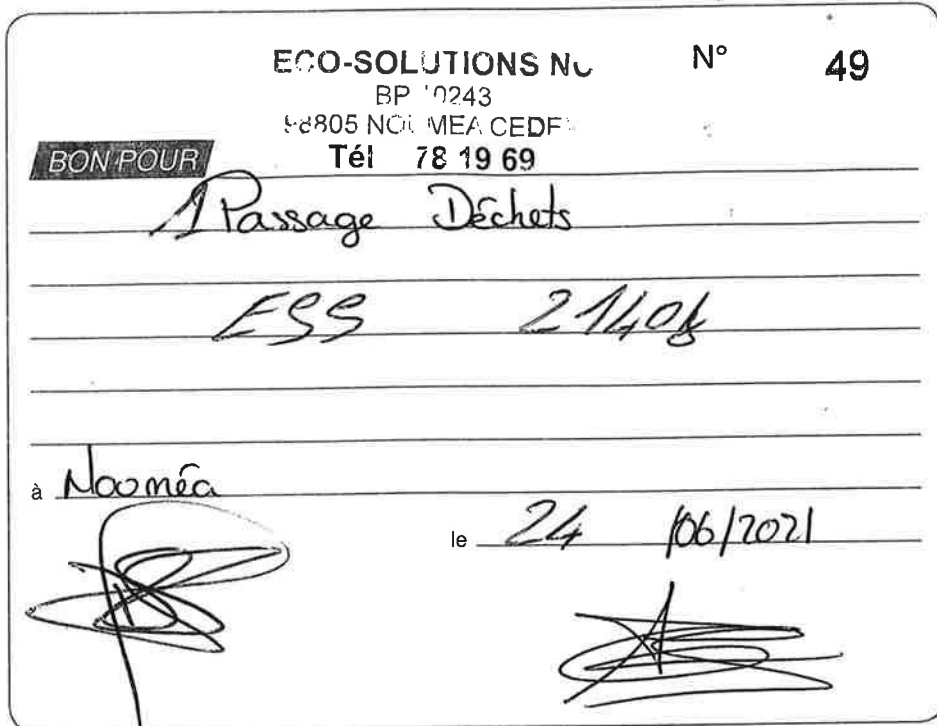 ECO-SOLUTIONS N° 49
BP 0243
98805 NOUMEA CEDE
Tél 78 19 69
BON POUR
1 Passage Déchets
ESS
à Nouméa
le 24 /06/2021